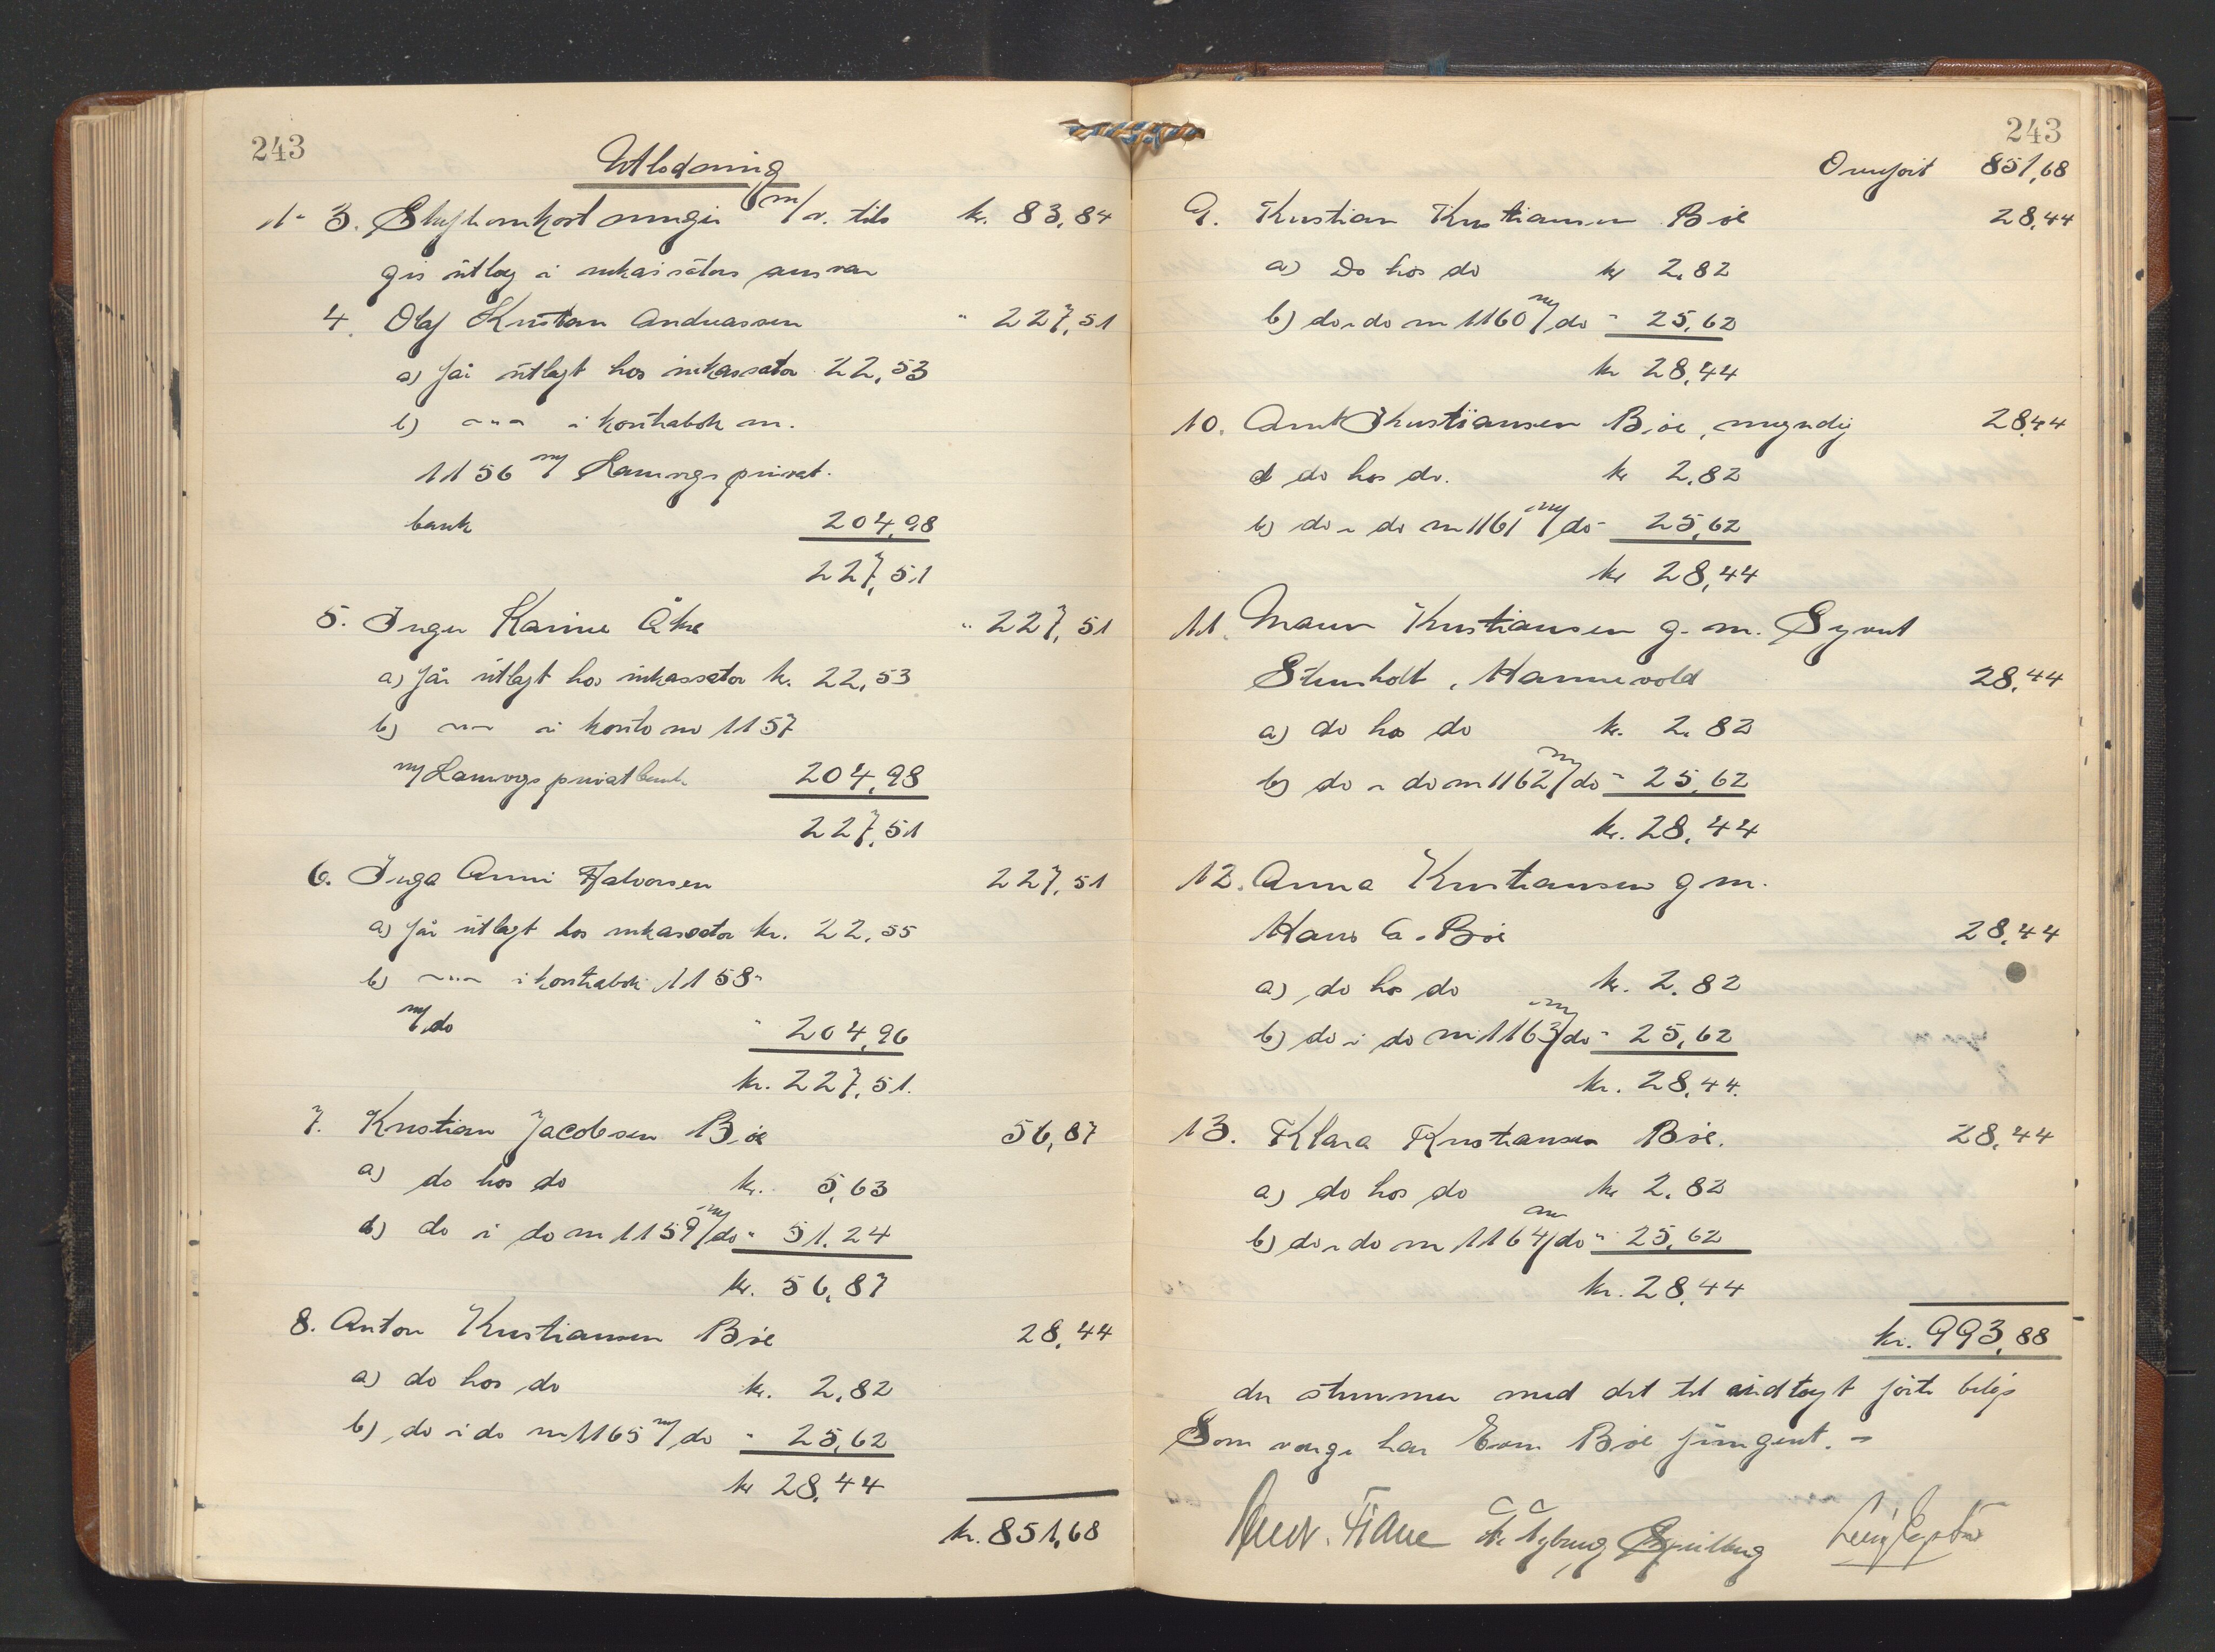 243
Utlodning
1- 3. Skifteomkostninger m/v. tils kr. 83,84
gis utlæg i inkassators ansvar
4. Olaf Kristian Andreassen " 227,51
a) får utlagt hos inkassator 22,53
b) -"- i kontrabok nr.
1156 m/ Larvigs privat.
bank 204,98
227,51
5. Inger Karine Åke " 227,51
a) får utlagt hos inkassator kr. 22,53
b) -"- i konto nr 1157
m/ Larvigs privatbank 204,98
227,51
6. Inga Anni Halvorsen 227,51
a) får utlagt hos inkassator kr. 22,55
b) -"- i kontrabok 1158
m/ do " 204,96
kr. 227,51.
7. Kristian Jacobsen Bøe 56,87
a) do hos do kr. 5,63
b) do i do nr 1159 m/ do " 51,24
kr. 56,87
8. Anton Kristiansen Bøe 28,44
a) do hos do kr. 2,82
b) do i do nr 1165 m/ do " 25,62
kr 28,44
kr. 851,68
243
Overført 851,68
9. Kristian Kristiansen Bøe 28,44
a) Do hos do kr 2,82
b) do i do nr 1160 m/ do " 25,62
kr 28,44
10. Arnt Kristiansen Bøe, myndig 28,44
a do hos do. kr 2,82
b) do i do nr 1161 m/ do - 25,62
kr 28,44
11. Maren Kristiansen g. m. Syvert
Stenholt, Hannevold 28,44
a) do hos do kr. 2,82
b) do i do nr 1162 m/ do " 25,62
kr. 28,44
12. Anna Kristiansen g m.
Hans A. Bøe 28,44
a) do hos do kr. 2,82
b) do i do nr 1163 m/ do " 25,62
kr. 28,44.
13. Klara Kristiansen Bøe. 28,44
a) do hos do kr 2,82
b) do i do nr 1164 m/ do " 25,62
kr. 28,44
kr. 993,88
der stemmer med det til indtægt førte beløp
Som verge har Even Bøe fungert. -